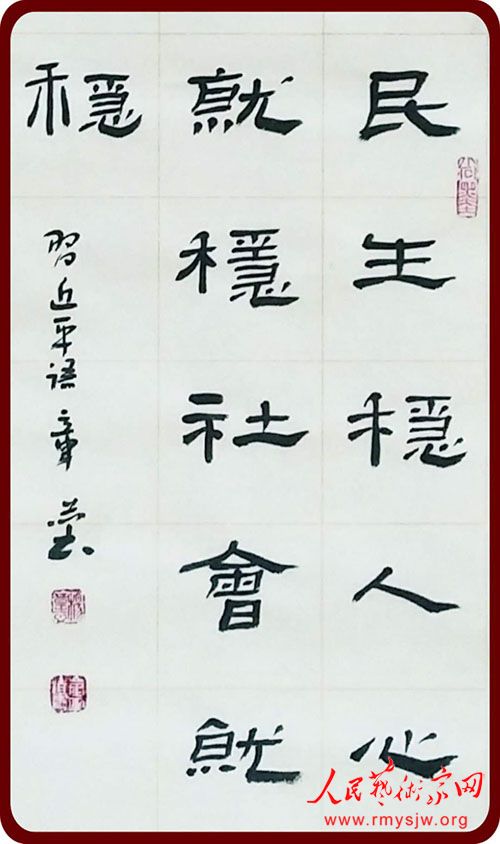 民生穩人心
就穩社會就
穩
習近平語 章
人民藝術家网
www.rmysjw.org